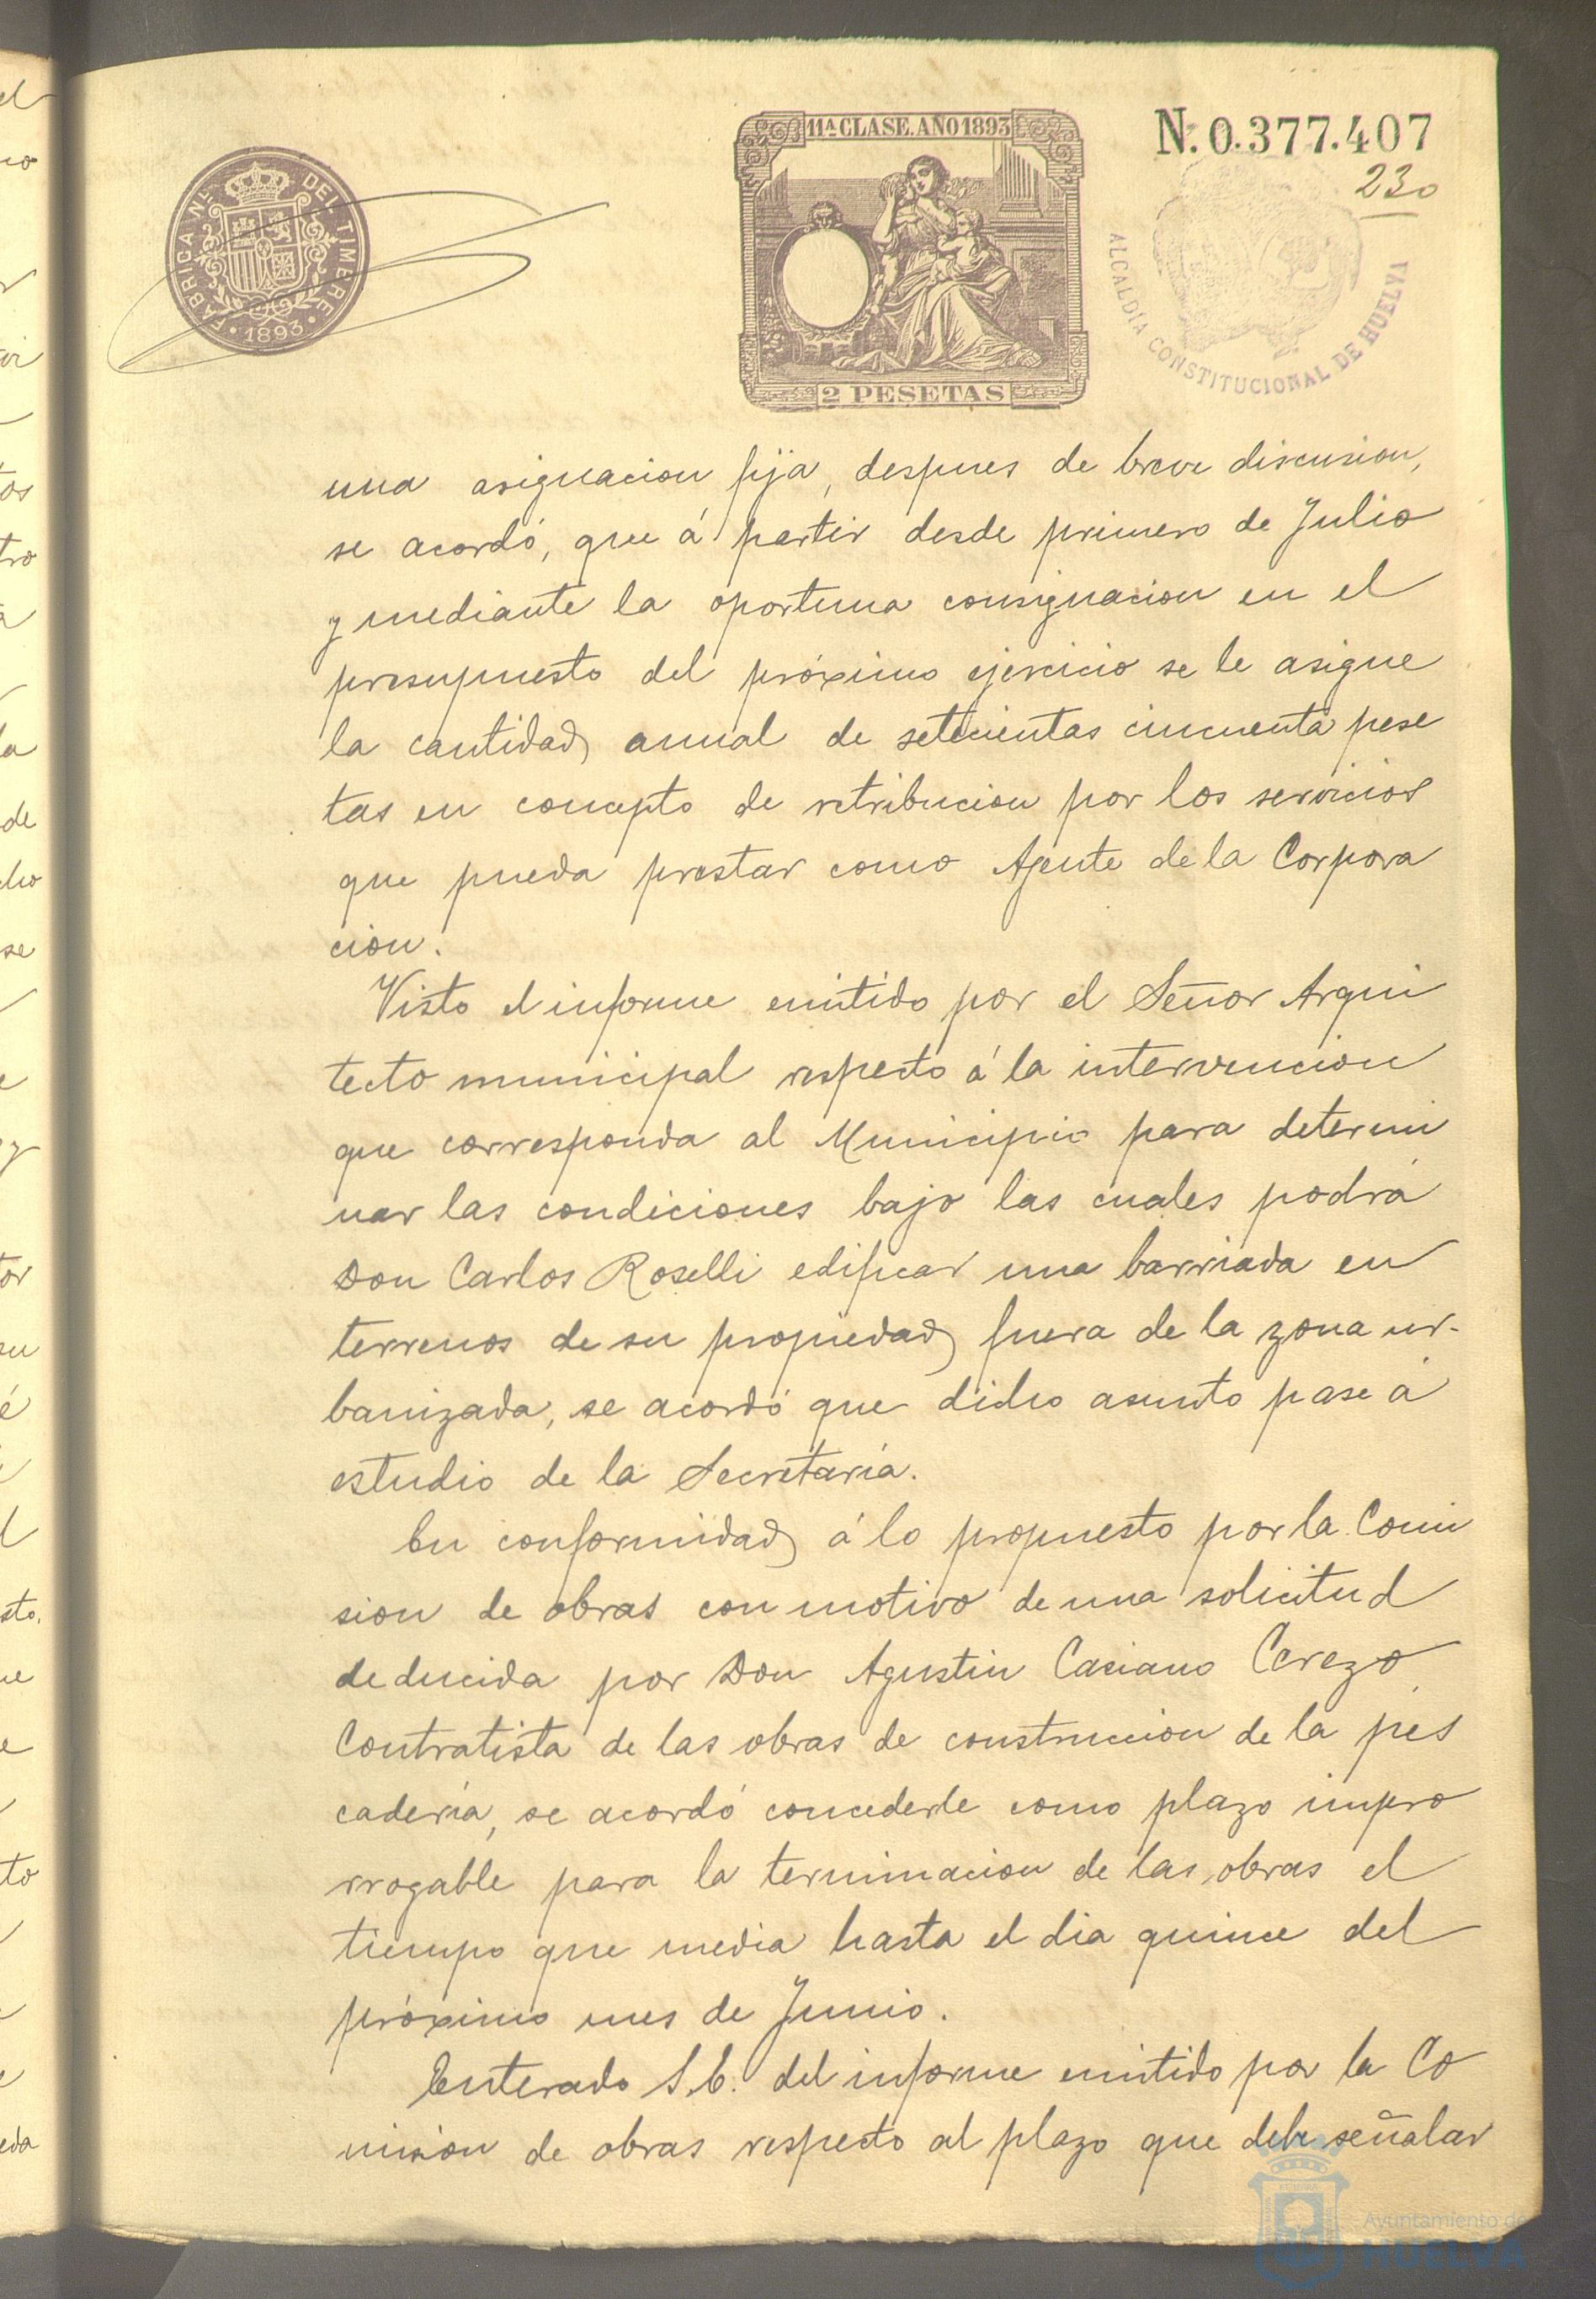 11ª CLASE. AÑO 1893
N. 0.377.407
230
FABRICA NL. DEL TIMBRE
· 1893 ·
2 PESETAS
ALCALDÍA CONSTITUCIONAL DE HUELVA
una asignacion fija, despues de breve discusion,
se acordó, que á partir desde primero de Julio
y mediante la oportuna consignacion en el
presupuesto del próximo ejercicio se le asigne
la cantidad anual de setecientas cincuenta pese
tas en concepto de retribucion por los servicios
que pueda prestar como Agente de la Corpora
cion.
Visto el informe emitido por el Señor Arqui
tecto municipal respecto á la intervencion
que corresponda al Municipio para determi
nar las condiciones bajo las cuales podrá
Don Carlos Roselli edificar una barriada en
terrenos de su propiedad fuera de la zona ur-
banizada, se acordó que dicho asunto pase á
estudio de la Secretaría.
En conformidad á lo propuesto por la Comi
sion de obras con motivo de una solicitud
deducida por Don Agustin Casiano Cerezo
Contratista de las obras de construccion de la pes
cadería, se acordó concederle como plazo impro
rrogable para la terminacion de las obras el
tiempo que media hasta el dia quince del
próximo mes de Junio.
Enterado S.E. del informe emitido por la Co
mision de obras respecto al plazo que debe señalar
Ayuntamiento de
HUELVA